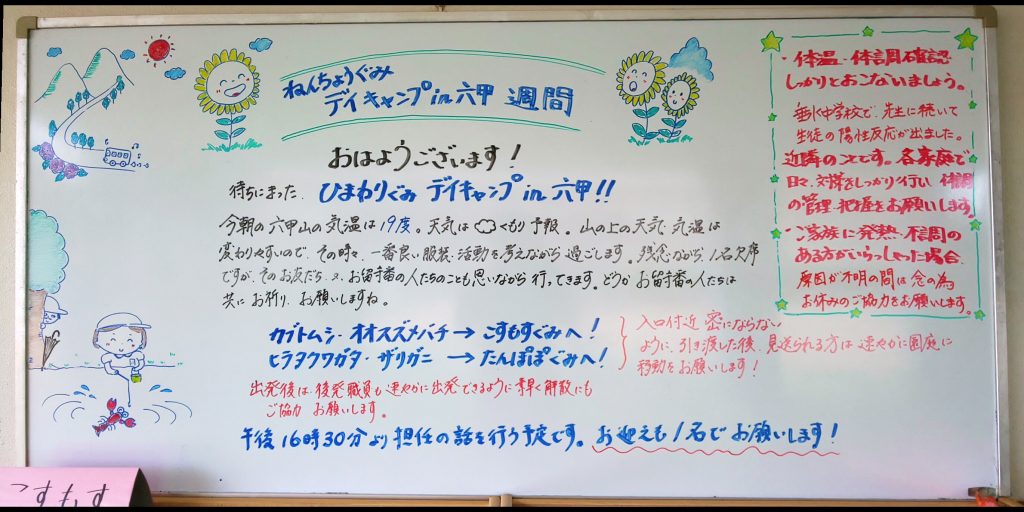 ねんちょうぐみ
デイキャンプin六甲 週間
おはようございます!
待ちにまった ひまわりぐみ デイキャンプ in 六甲!!
今朝の六甲山の気温は19度。天気は くもり予報。山の上の天気・気温は
変わりやすいので、その時々、一番良い服装・活動を考えながら過ごします。残念ながら1名欠席
ですが、そのお友だち、又、お留守番の人たちのことも思いながら行ってきます。どうかお留守番の人たちは
共にお祈り、お願いしますね。
カブトムシ・オオスズメバチ→こすもすぐみへ!
ヒラタクワガタ・ザリガニ →たんぽぽぐみへ!
入口付近 密にならない
ように、引き渡した後、見送られる方は速やかに園庭に
移動をお願いします!
出発後は、後発職員も速やかに出発できるように素早く解散にも
ご協力 お願いします。
午後16時30分より担任の話を行う予定です。お迎えも1名でお願いします!
・体温・体調確認
しっかりとおこないましょう。
垂水中学校で、先生に続いて
生徒の陽性反応が出ました。
近隣のことです。各家庭で
日々、対策をしっかり行い 体調
の管理・把握をお願いします。
・ご家族に発熱・不調の
ある方がいらっしゃった場合、
原因が不明の間は念の為
お休みのご協力をお願いします。
こすもす